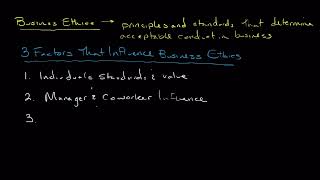 Business Ethics → principles and standards that determine
acceptable conduct in business
3 Factors That Influence Business Ethics
1. Individual's standards & value
2. Manager & Coworker Influence
3.